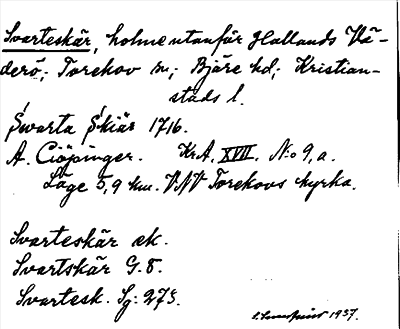 Svarteskär, holme utanför Hallands Vä-
derö; Torekov sn; Bjäre hd; Kristian-
stads l.
Swarta Skiär 1716.
A. Ciöpinger. Kr.A. XVII. N:o 9, a.
Läge 5,9 km. VNV Torekovs kyrka.
Svarteskär ek.
Svartskär G.8.
Svartesk. Sg: 275.
1937.